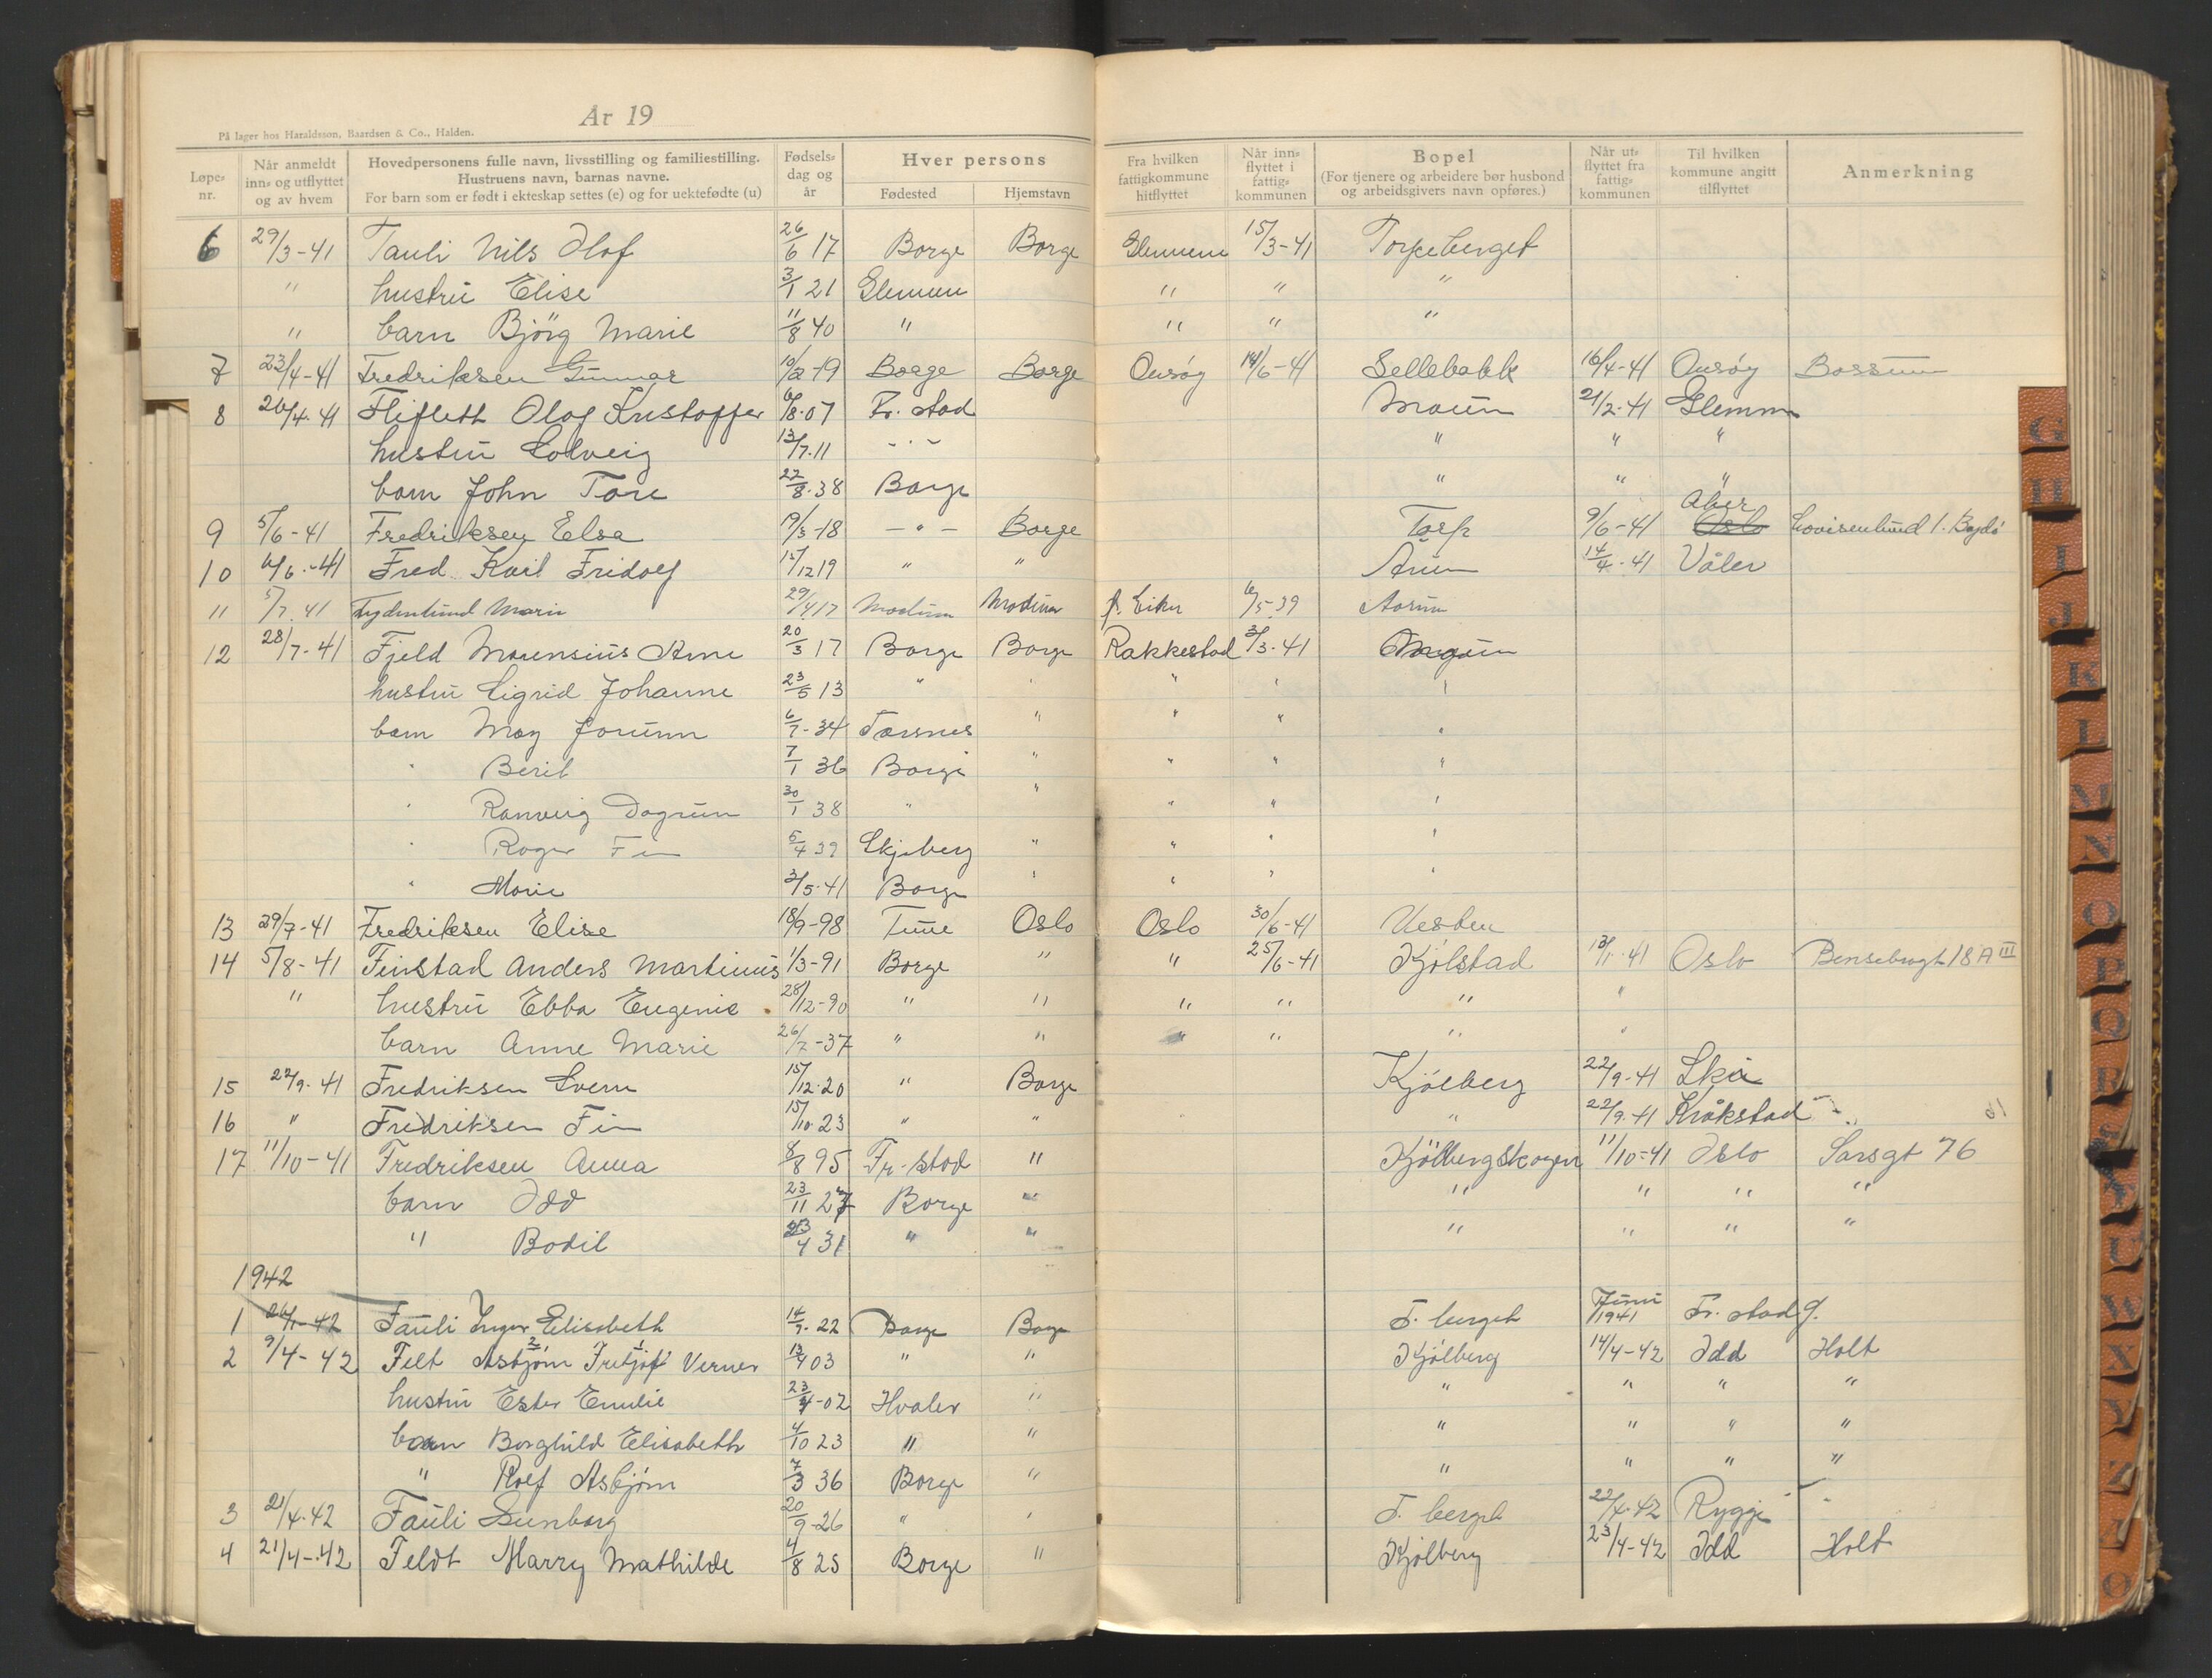 År 19
På lager hos Haraldsson, Baardsen & Co., Halden.
Løpe-nr. Når anmeldt inn- og utflyttet og av hvem Hovedpersonens fulle navn, livsstilling og familiestilling. Hustruens navn, barnas navne. For barn som er født i ekteskap settes (e) og for uektefødte (u) Fødsels-dag og år Hver persons Fødested Hjemstavn Fra hvilken fattigkommune hitflyttet Når inn-flyttet i fattig-kommunen Bopel (For tjenere og arbeidere bør husbond og arbeidsgivers navn opføres.) Når ut-flyttet fra fattig-kommunen Til hvilken kommune angitt tilflyttet Anmerkning
6 29/3-41 Fauli Nils Olof 26/6 17 Borge Borge Glemmen 15/3-41 Torpeberget
" hustru Elise 3/1 21 Glemmen " " "
" barn Bjørg Marie 11/8 40 " " " "
7 23/4-41 Fredriksen Gunnar 10/2-19 Borge Borge Onsøy 14/6-41 Sellebakk 16/4-41 Onsøy
8 26/4-41 Flifleth Olaf Kristoffer 6/8-07 Fr. stad Moum 21/2-41 Glemm
hustru Solveig 13/7-11 - " - " " "
barn John Tore 22/8-38 Borge " " "
9 5/6-41 Fredriksen Elsa 19/3-18 - " - Borge Torp 9/6-41 Oslo Aker Lovisenlund 1. Bygdö
10 6/6-41 Fred Karl Fridolf 15/12 19 " " Årum 14/4-41 Våler
11 5/7 41 Marie 29/4 17 Modum Modum Ø. Eiker 6/5-39 Aarum
12 28/7-41 Fjeld Mourensius Arne 20/3 17 Borge Borge Rakkestad 3/3-41
hustru Sigrid Johanne 23/5 13 " " " " "
barn May Jorunn 6/7-34 Torsnes " " " "
" Berit 7/1 36 Borge " " " "
" Ranveig Dagrun 30/1 38 " " " " "
" Roger Fin 5/4 39 Skjeberg " " " "
" Marie 3/5-41 Borge " " " "
13 29/7-41 Fredriksen Elise 18/9-98 Tune Oslo Oslo 30/6-41 Vesten
14 5/8-41 Finstad Anders Martinius 1/3-91 Borge " " 25/6-41 Kjølstad 13/1-41 Oslo 18 A III
" hustru Ebba Eugenie 28/12-90 " " " " " "
barn Anne Marie 26/7-37 " " " " " "
15 22/9-41 Fredriksen Svern 15/12-20 " Borge Kjølberg 22/9-41 Ski
16 " Fredriksen Fin 15/10-23 " " " 22/9-41 Kråkstad
17 11/10-41 Fredriksen Anna 8/8 95 Fr.stad " Kjølbergskogen 11/10-41 Oslo Sarsgt 76
barn Odd 23/11 27 Borge " " " " "
" Bodil 23/4 31 " " " " " "
1942
1 26/1-42 Fauli Inger Elisabeth 14/9-22 Borge Borge T. berget Juni 1941 Fr. stad
2 9/4-42 Felt Asbjørn Fritjof Verner 13/4 03 " " Kjølberg 14/4-42 Idd Holt
hustru Ester Emilie 23/4-02 Hvaler " " " " "
barn Borghild Elisabeth 4/10 23 " " " " " "
" Rolf Asbjørn 7/3 36 Borge " " " " "
3 21/4-42 Fauli Sunborg 20/9-26 " " T. berget 22/4-42 Rygge
4 21/4-42 Feldt Marry Mathilde 4/8 25 Borge " Kjølberg 23/4-42 Idd Holt